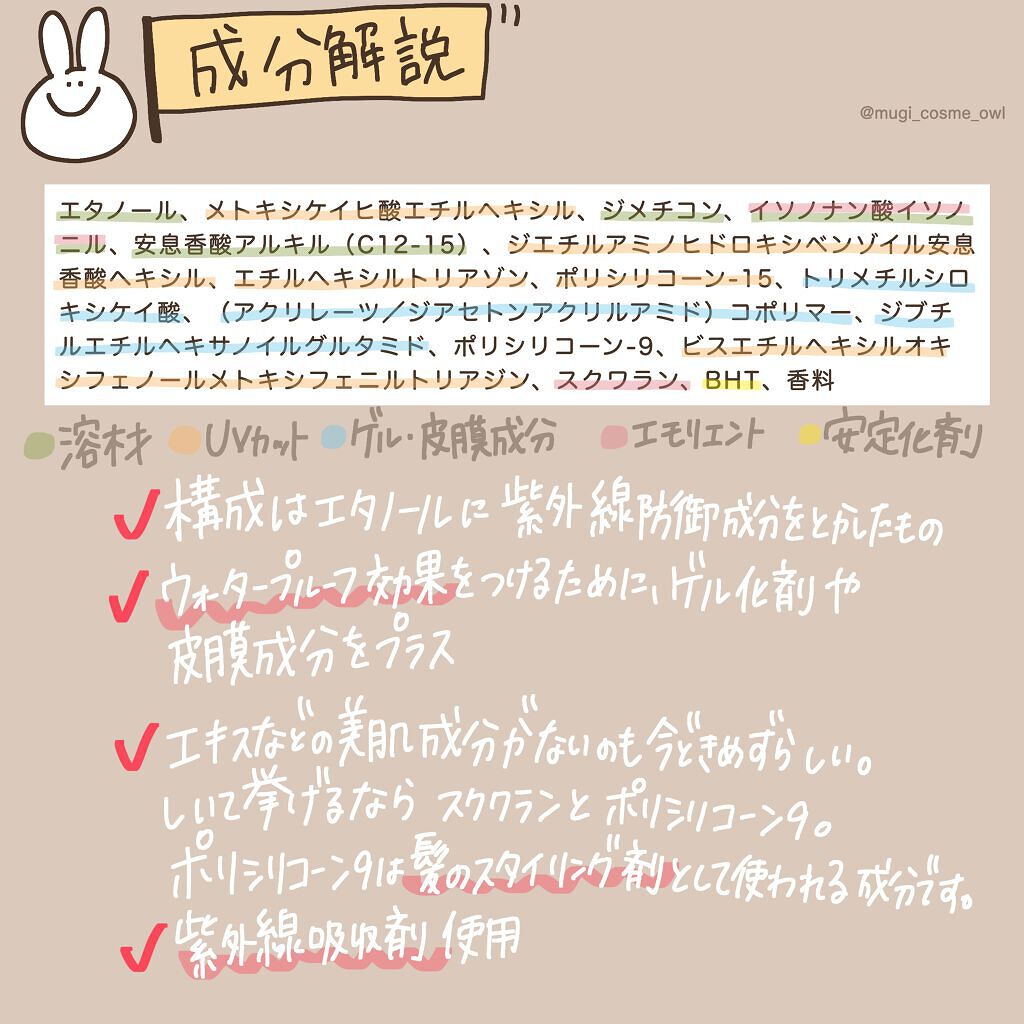 成分解説
@mugi_cosme_owl
エタノール、メトキシケイヒ酸エチルヘキシル、ジメチコン、イソノナン酸イソノ
ニル、安息香酸アルキル（C12-15）、ジエチルアミノヒドロキシベンゾイル安息
香酸ヘキシル、エチルヘキシルトリアゾン、ポリシリコーン-15、トリメチルシロ
キシケイ酸、（アクリレーツ／ジアセトンアクリルアミド）コポリマー、ジブチ
ルエチルヘキサノイルグルタミド、ポリシリコーン-9、ビスエチルヘキシルオキ
シフェノールメトキシフェニルトリアジン、スクワラン、BHT、香料
溶材 UVカット ゲル・皮膜成分 エモリエント 安定化剤
構成はエタノールに紫外線防御成分をとかしたもの
ウォータープルーフ効果をつけるために、ゲル化剤や
皮膜成分をプラス
エキスなどの美肌成分がないのも今どきめずらしい。
しいて挙げるなら スクワランと ポリシリコーン9。
ポリシリコーン9は髪のスタイリング剤として使われる成分です。
紫外線吸収剤使用